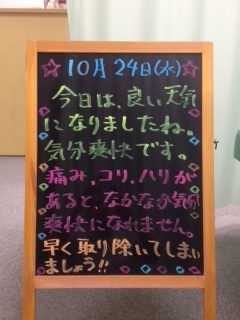 ☆10月24日(水)☆
今日は、良い天気
になりましたね。
気分爽快です。
痛み,コリ,ハリが
あると、なかなか気分
爽快になれません。
早く取り除いてしまい
ましょう!!